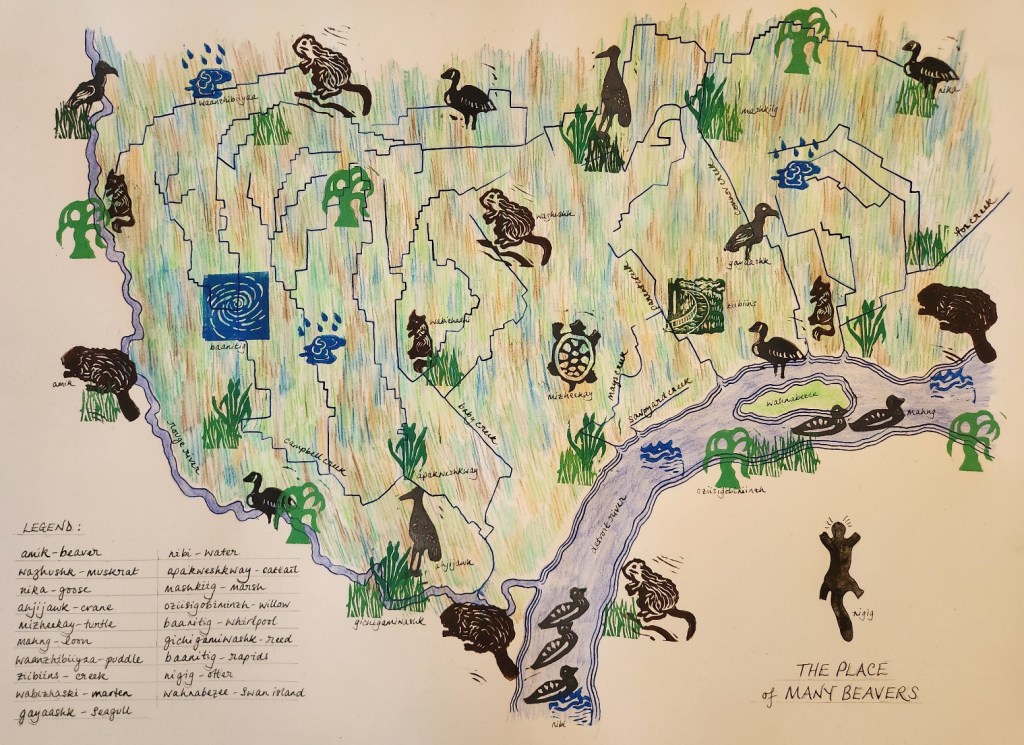 waanzhibiiyaa
nika
mashkiig
wazhushk
conner creek
fox creek
gayaashk
ziibiins
wabizhaski
baanitig
mizheekay
mays creek
savoyard creek
wahnabezee
mahng
amik
baby creek
campbell creek
rouge river
apakweshkway
oziisigobiminzh
detroit river
ahjijawk
gichigamiwashk
nigig
nibi
LEGEND:
amik - beaver
wazhushk - muskrat
nika - goose
ahjijawk - crane
mizheekay - turtle
mahng - loon
waanzhibiiyaa - puddle
ziibiins - creek
wabizhaski - marten
gayaashk - seagull
nibi - water
apakweshkway - cattail
mashkiig - marsh
oziisigobiminzh - willow
baanitig - whirlpool
gichigamiwashk - reed
baanitig - rapids
nigig - otter
wahnabezee - swan island
THE PLACE
of MANY BEAVERS